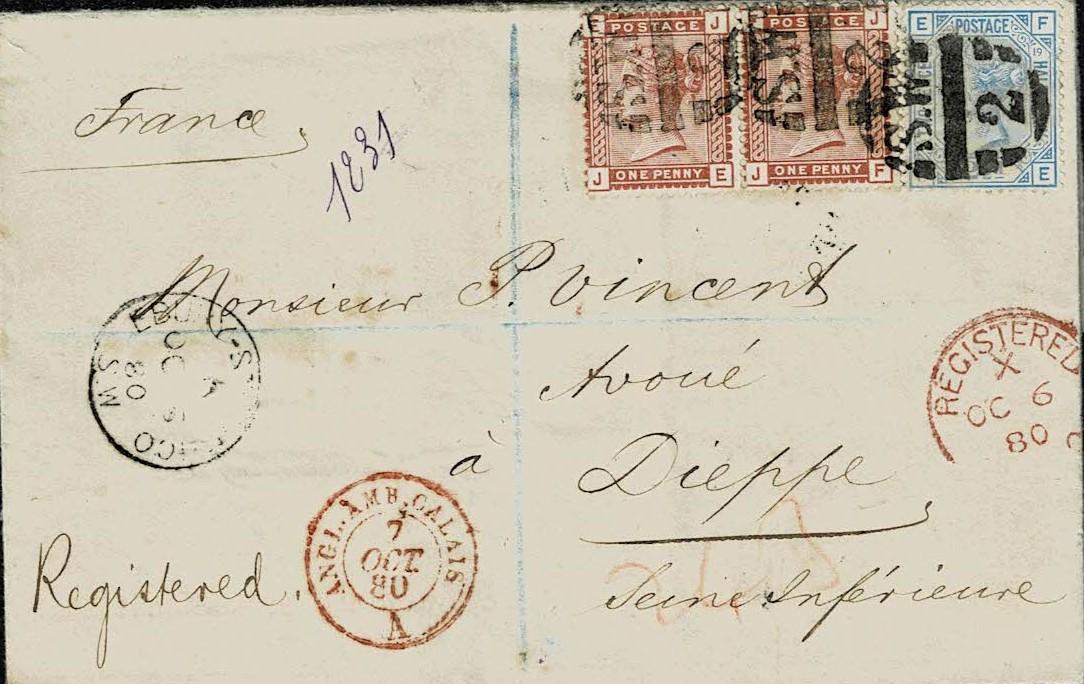 E POSTAGE J
ONE PENNY
J E
POSTAGE J
ONE PENNY
J F
E POSTAGE F
19
E
S.W
2
France
1231
Monsieur P. Vincent
Avoué
à Dieppe
Seine Inférieure
Registered.
REGISTERED
X
OC 6
80
ANGL. AMB. CALAIS
7
OCT.
80
A
EBU
S.W
80